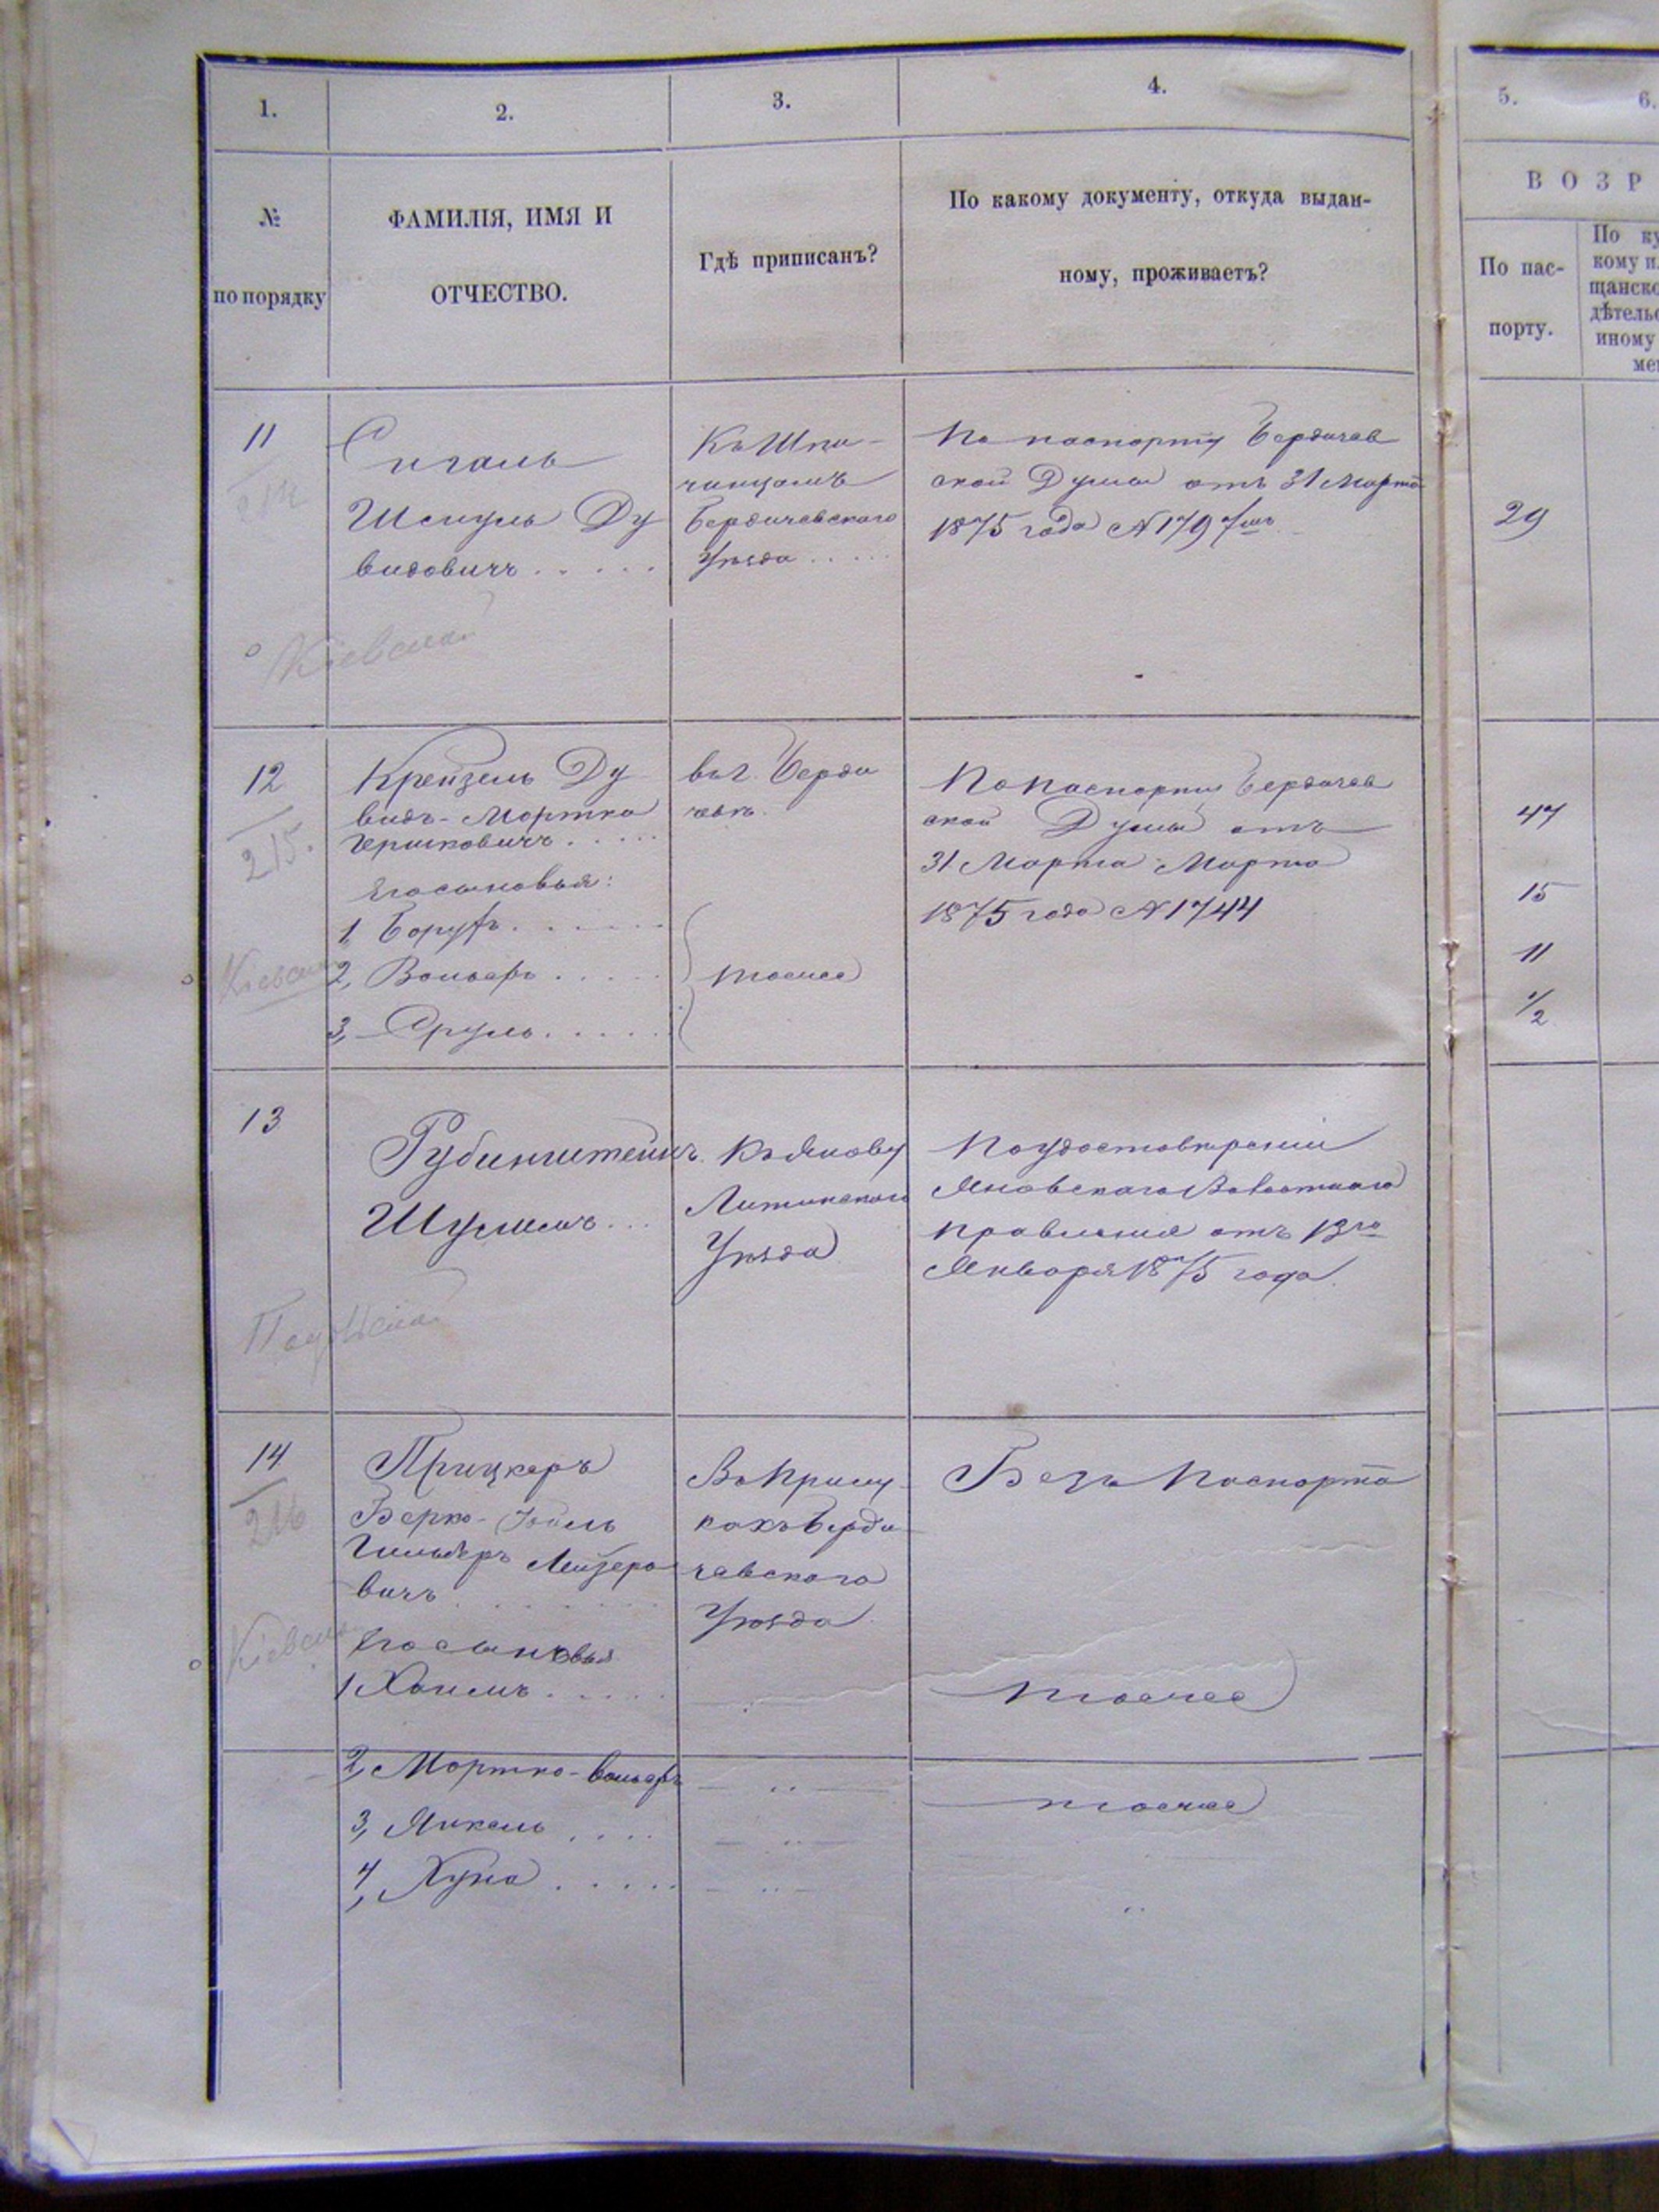 1.
2.
3.
4.
5.
6.
№
по порядку
ФАМИЛІЯ, ИМЯ И
ОТЧЕСТВО.
Гдѣ приписанъ?
По какому документу, откуда выдан-
ному, проживаетъ?
ВОЗР
По пас-
порту.
По ку
кому и
щанско
дѣтельс
иному
мен
11
Сигаль
Шмуль Ду
видовичъ
Бердичевскаго
Уѣзда
По паспорту Бердичев
ской Думы отъ 31 Марта
1875 года № 1797мъ
29
Кіевской
12
215.
Крейзель Ду
видъ-Мортко
Гершковичъ
Его сыновья:
1, Борухъ
2, Вольфъ
3, Сруль
въ г. Берди
чевѣ
тоже
По паспорту Бердичев
ской Думы отъ
31 Марта Марта
1875 года № 1744
47
15
11
1/2
Кіевской
13
Рубинштейнъ
Шулимъ
Къ Янову
Литинскаго
Уѣзда
По удостовѣренію
Яновскаго Волостнаго
правленія отъ 13го
Января 1875 года.
Подольской
14
216
Прицкеръ
Берко-Іойль
Лейзеро
вичъ
Его сыновья
1 Хаимъ
2, Мортко-Вольфъ
3, Янкель
4, Хуна
какъ Берди
чевскаго
Уѣзда
Безъ паспорта
тоже
тоже
Кіевской